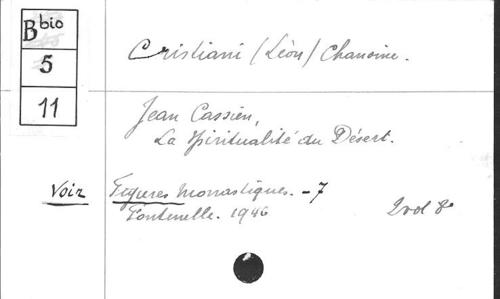 B bio
5
11
Cristiani (Léon) Chanoine.
Jean Cassien,
La Spiritualité du Désert.
Voir Figures Monastiques. - 7
Fontenelle. 1946
2 vol 8°